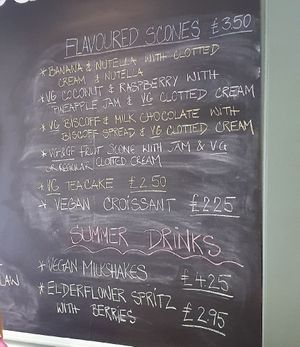 FLAVOURED SCONES £3.50
* BANANA & NUTELLA WITH CLOTTED
CREAM & NUTELLA
* VG COCONUT & RASPBERRY WITH
PINEAPPLE JAM & VG CLOTTED CREAM
* VG BISCOFF & MILK CHOCOLATE WITH
BISCOFF SPREAD & VG CLOTTED CREAM
* VG & GF FRUIT SCONE WITH JAM & VG
OR REGULAR CLOTTED CREAM
* VG TEACAKE £2.50
* VEGAN CROISSANT £2.25
SUMMER DRINKS
* VEGAN MILKSHAKES £4.25
* ELDERFLOWER SPRITZ
WITH BERRIES £2.95